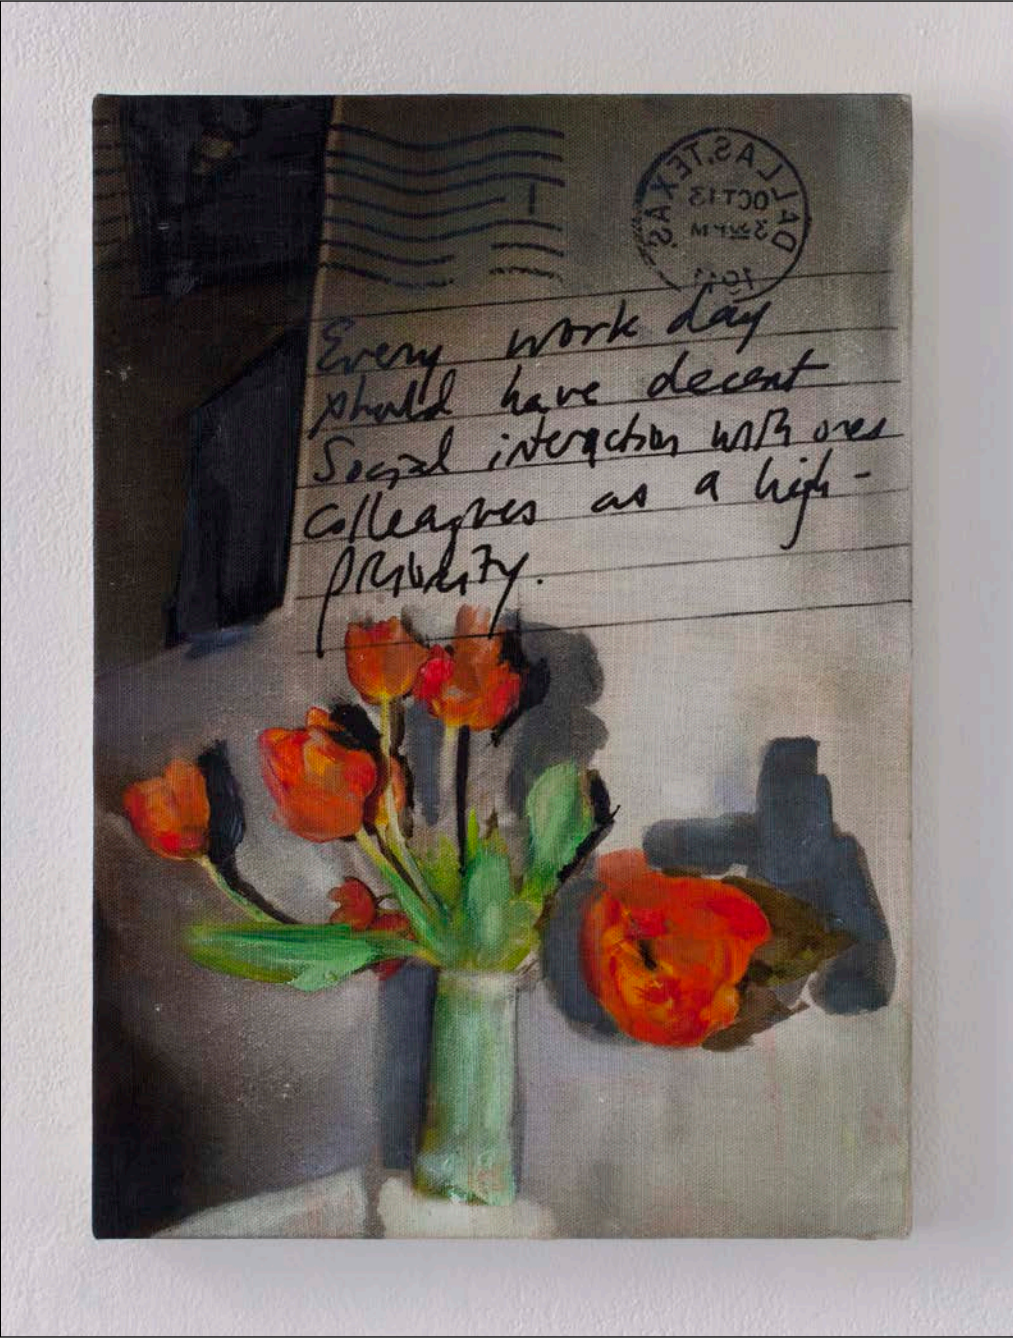 DALLAS, TEXAS
OCT 13
3 PM
1911
Every work day
should have decent
Social interaction with ones
colleagues as a high-
priority.